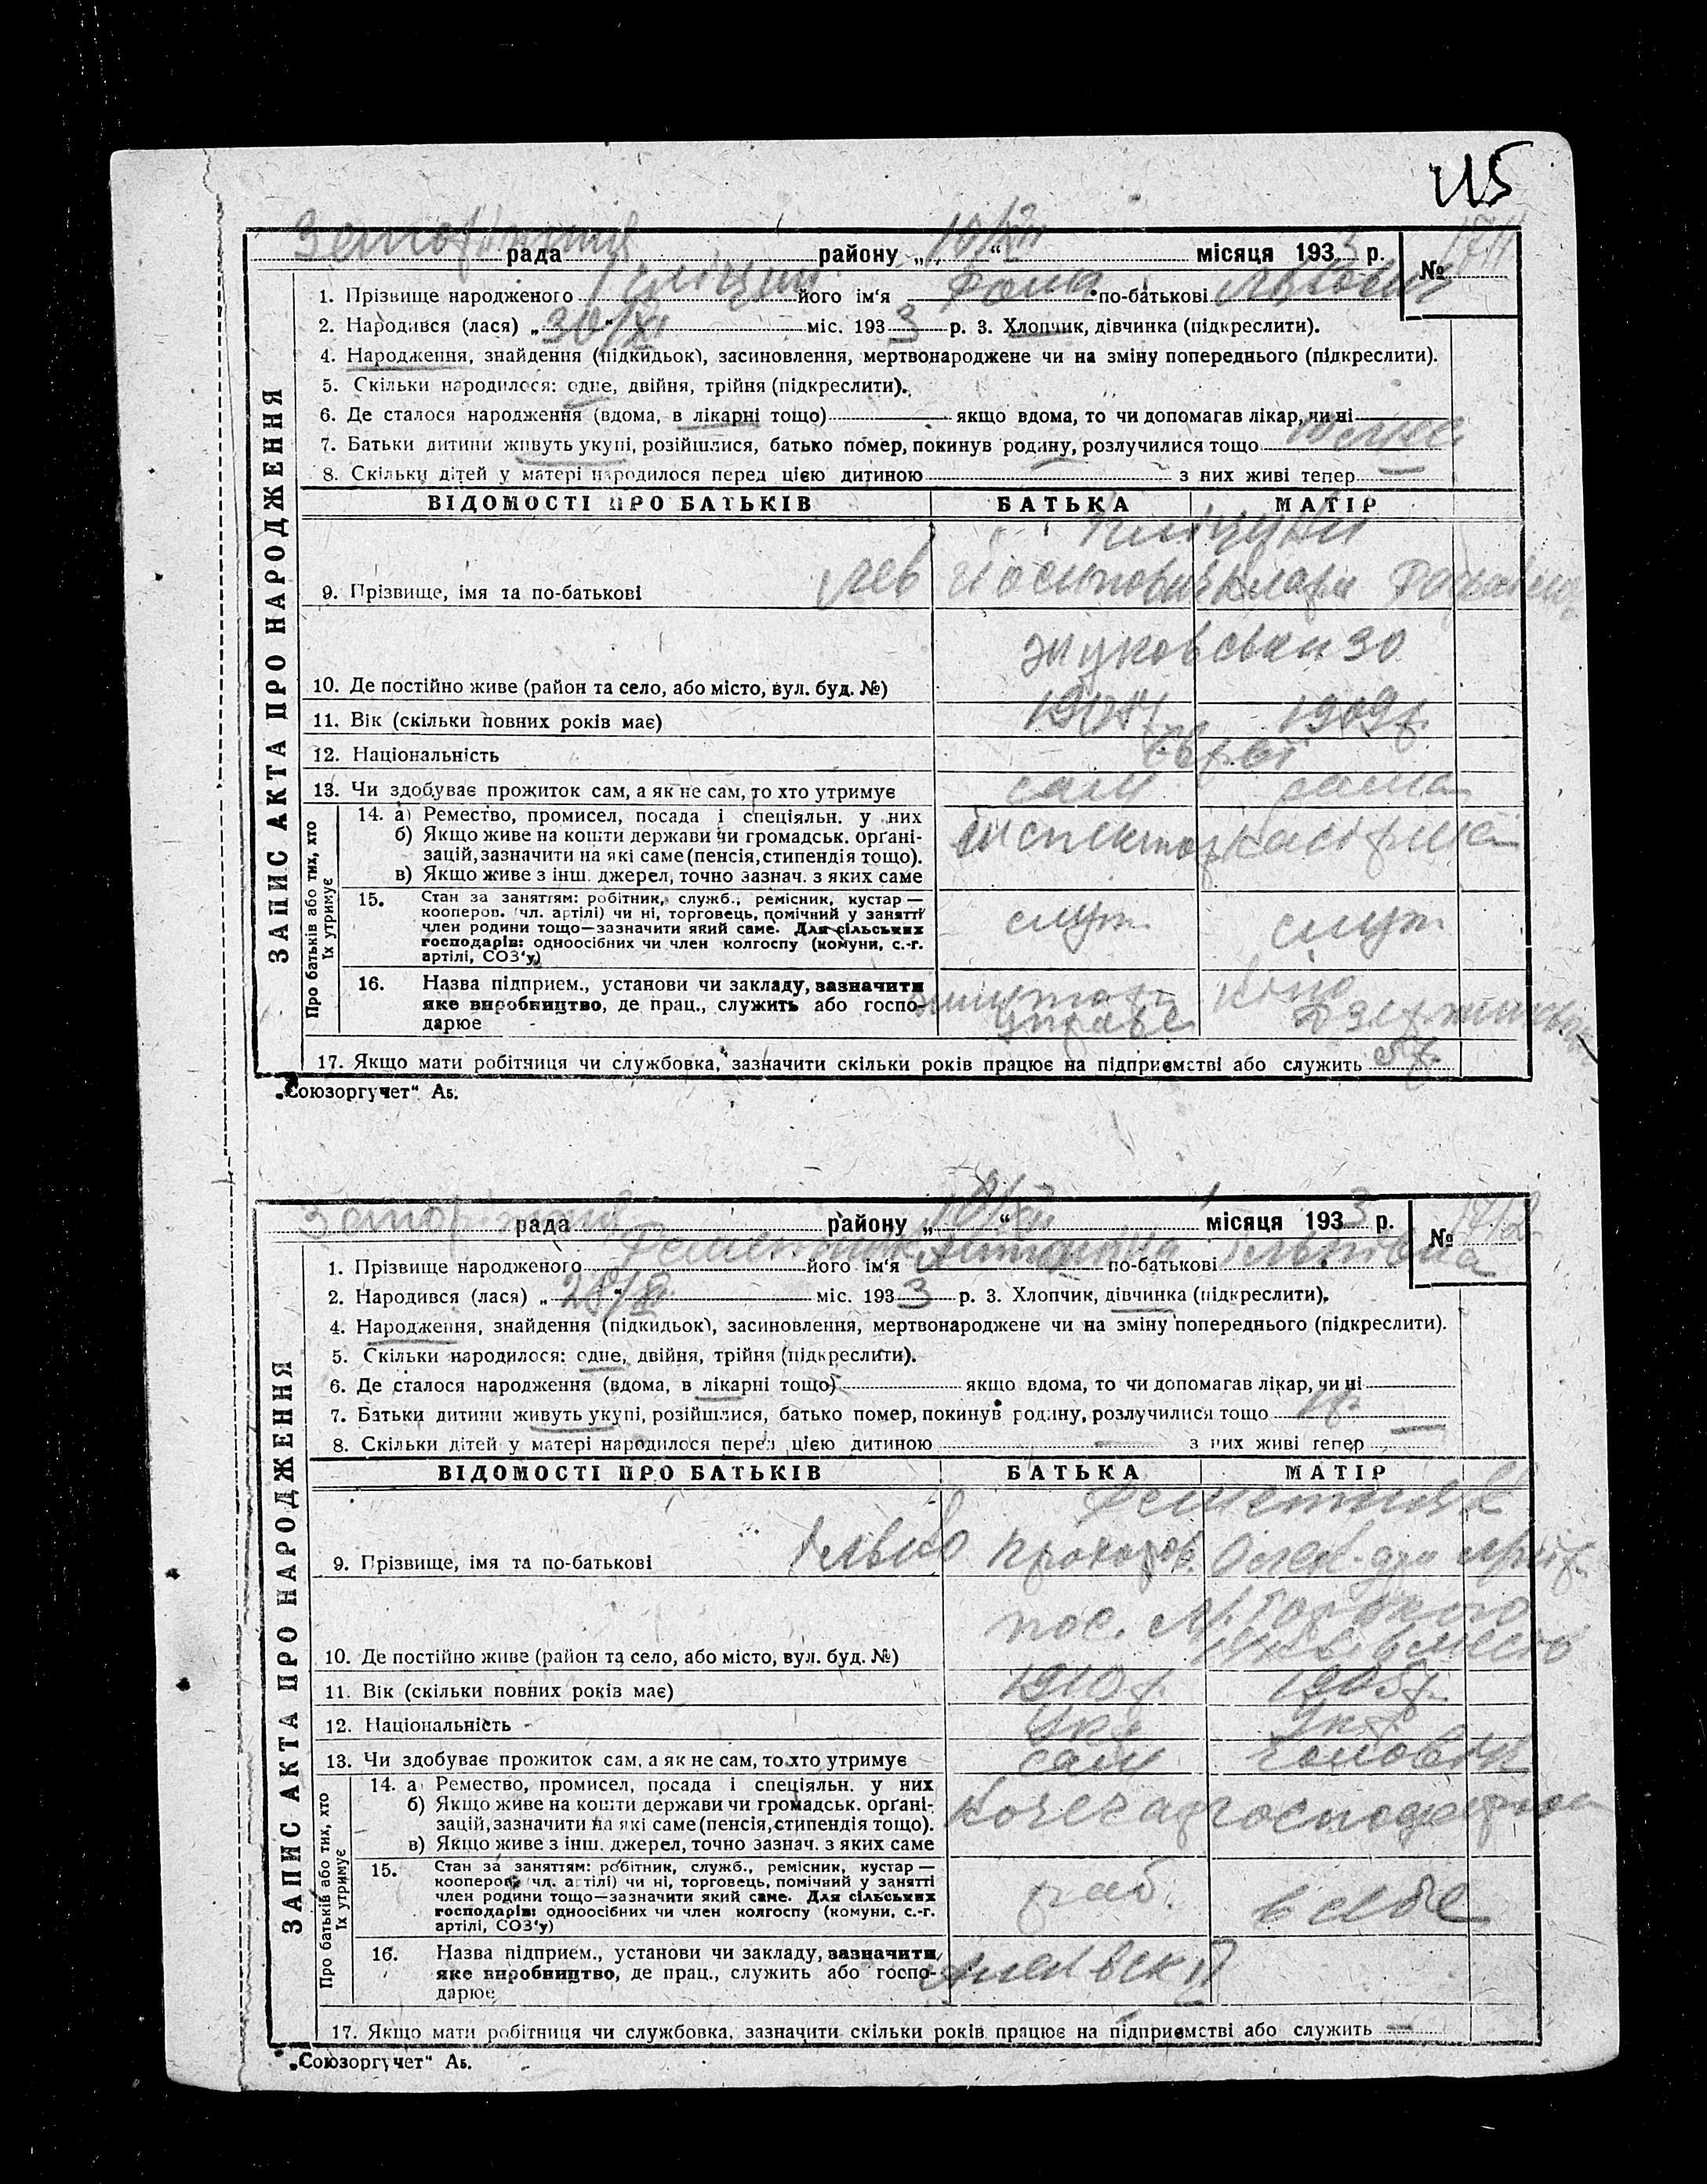 115
рада району „ 10/XII “ місяця 1933 р. № 1711
1. Прізвище народженого його ім'я по-батькові Львович
2. Народився (лася) „ 30/XI “ міс. 1933 р. 3. Хлопчик, дівчинка (підкреслити).
4. Народження, знайдення (підкидьок), засиновлення, мертвонароджене чи на зміну попереднього (підкреслити).
5. Скільки народилося: одне, двійня, трійня (підкреслити).
6. Де сталося народження (вдома, в лікарні тощо) якщо вдома, то чи допомагав лікар, чи ні
7. Батьки дитини живуть укупі, розійшлися, батько помер, покинув родину, розлучилися тощо
8. Скільки дітей у матері народилося перед цією дитиною — з них живі тепер —
ЗАПИС АКТА ПРО НАРОДЖЕННЯ
ВІДОМОСТІ ПРО БАТЬКІВ БАТЬКА МАТІР
9. Прізвище, імя та по-батькові Лев Йосипович Клара
10. Де постійно живе (район та село, або місто, вул. буд. №) 30
11. Вік (скільки повних років має) 1909 р.
12. Національність Євреї
13. Чи здобуває прожиток сам, а як не сам, то хто утримує сам сама
Про батьків або тих, хто їх утримує
14. а) Ремество, промисел, посада і спеціяльн. у них
б) Якщо живе на кошти держави чи громадськ. орґані-
зацій, зазначити на які саме (пенсія, стипендія тощо).
в) Якщо живе з інш. джерел, точно зазнач. з яких саме
інспектор касірша
15. Стан за заняттям: робітник, служб., ремісник, кустар —
кооперов. (чл. артілі) чи ні, торговець, помічний у занятті
член родини тощо—зазначити який саме. Для сільських
господарів: одноосібних чи член колгоспу (комуни, с.-г.
артілі, СОЗ'у)
служ. служ.
16. Назва підприєм., установи чи закладу, зазначити
яке виробництво, де прац., служить або госпо-
дарює
Кіно
17. Якщо мати робітниця чи службовка, зазначити скільки років працює на підприємстві або служить
„Союзоргучет“ А5.
рада району „ 10/XII “ місяця 1933 р. № 1712
1. Прізвище народженого його ім'я Антоніна по-батькові
2. Народився (лася) „ 28/XI “ міс. 1933 р. 3. Хлопчик, дівчинка (підкреслити).
4. Народження, знайдення (підкидьок), засиновлення, мертвонароджене чи на зміну попереднього (підкреслити).
5. Скільки народилося: одне, двійня, трійня (підкреслити).
6. Де сталося народження (вдома, в лікарні тощо) якщо вдома, то чи допомагав лікар, чи ні
7. Батьки дитини живуть укупі, розійшлися, батько помер, покинув родину, розлучилися тощо
8. Скільки дітей у матері народилося перед цією дитиною — з них живі тепер —
ЗАПИС АКТА ПРО НАРОДЖЕННЯ
ВІДОМОСТІ ПРО БАТЬКІВ БАТЬКА МАТІР
9. Прізвище, імя та по-батькові Прохоров.
10. Де постійно живе (район та село, або місто, вул. буд. №) пос.
11. Вік (скільки повних років має) 1910 р. 1905 р.
12. Національність Укр. Укр.
13. Чи здобуває прожиток сам, а як не сам, то хто утримує сам чоловік
Про батьків або тих, хто їх утримує
14. а) Ремество, промисел, посада і спеціяльн. у них
б) Якщо живе на кошти держави чи громадськ. орґані-
зацій, зазначити на які саме (пенсія, стипендія тощо).
в) Якщо живе з інш. джерел, точно зазнач. з яких саме
Кочегар
15. Стан за заняттям: робітник, служб., ремісник, кустар —
кооперов. (чл. артілі) чи ні, торговець, помічний у занятті
член родини тощо—зазначити який саме. Для сільських
господарів: одноосібних чи член колгоспу (комуни, с.-г.
артілі, СОЗ'у)
роб. в себе
16. Назва підприєм., установи чи закладу, зазначити
яке виробництво, де прац., служить або госпо-
дарює
17. Якщо мати робітниця чи службовка, зазначити скільки років працює на підприємстві або служить —
„Союзоргучет“ А5.